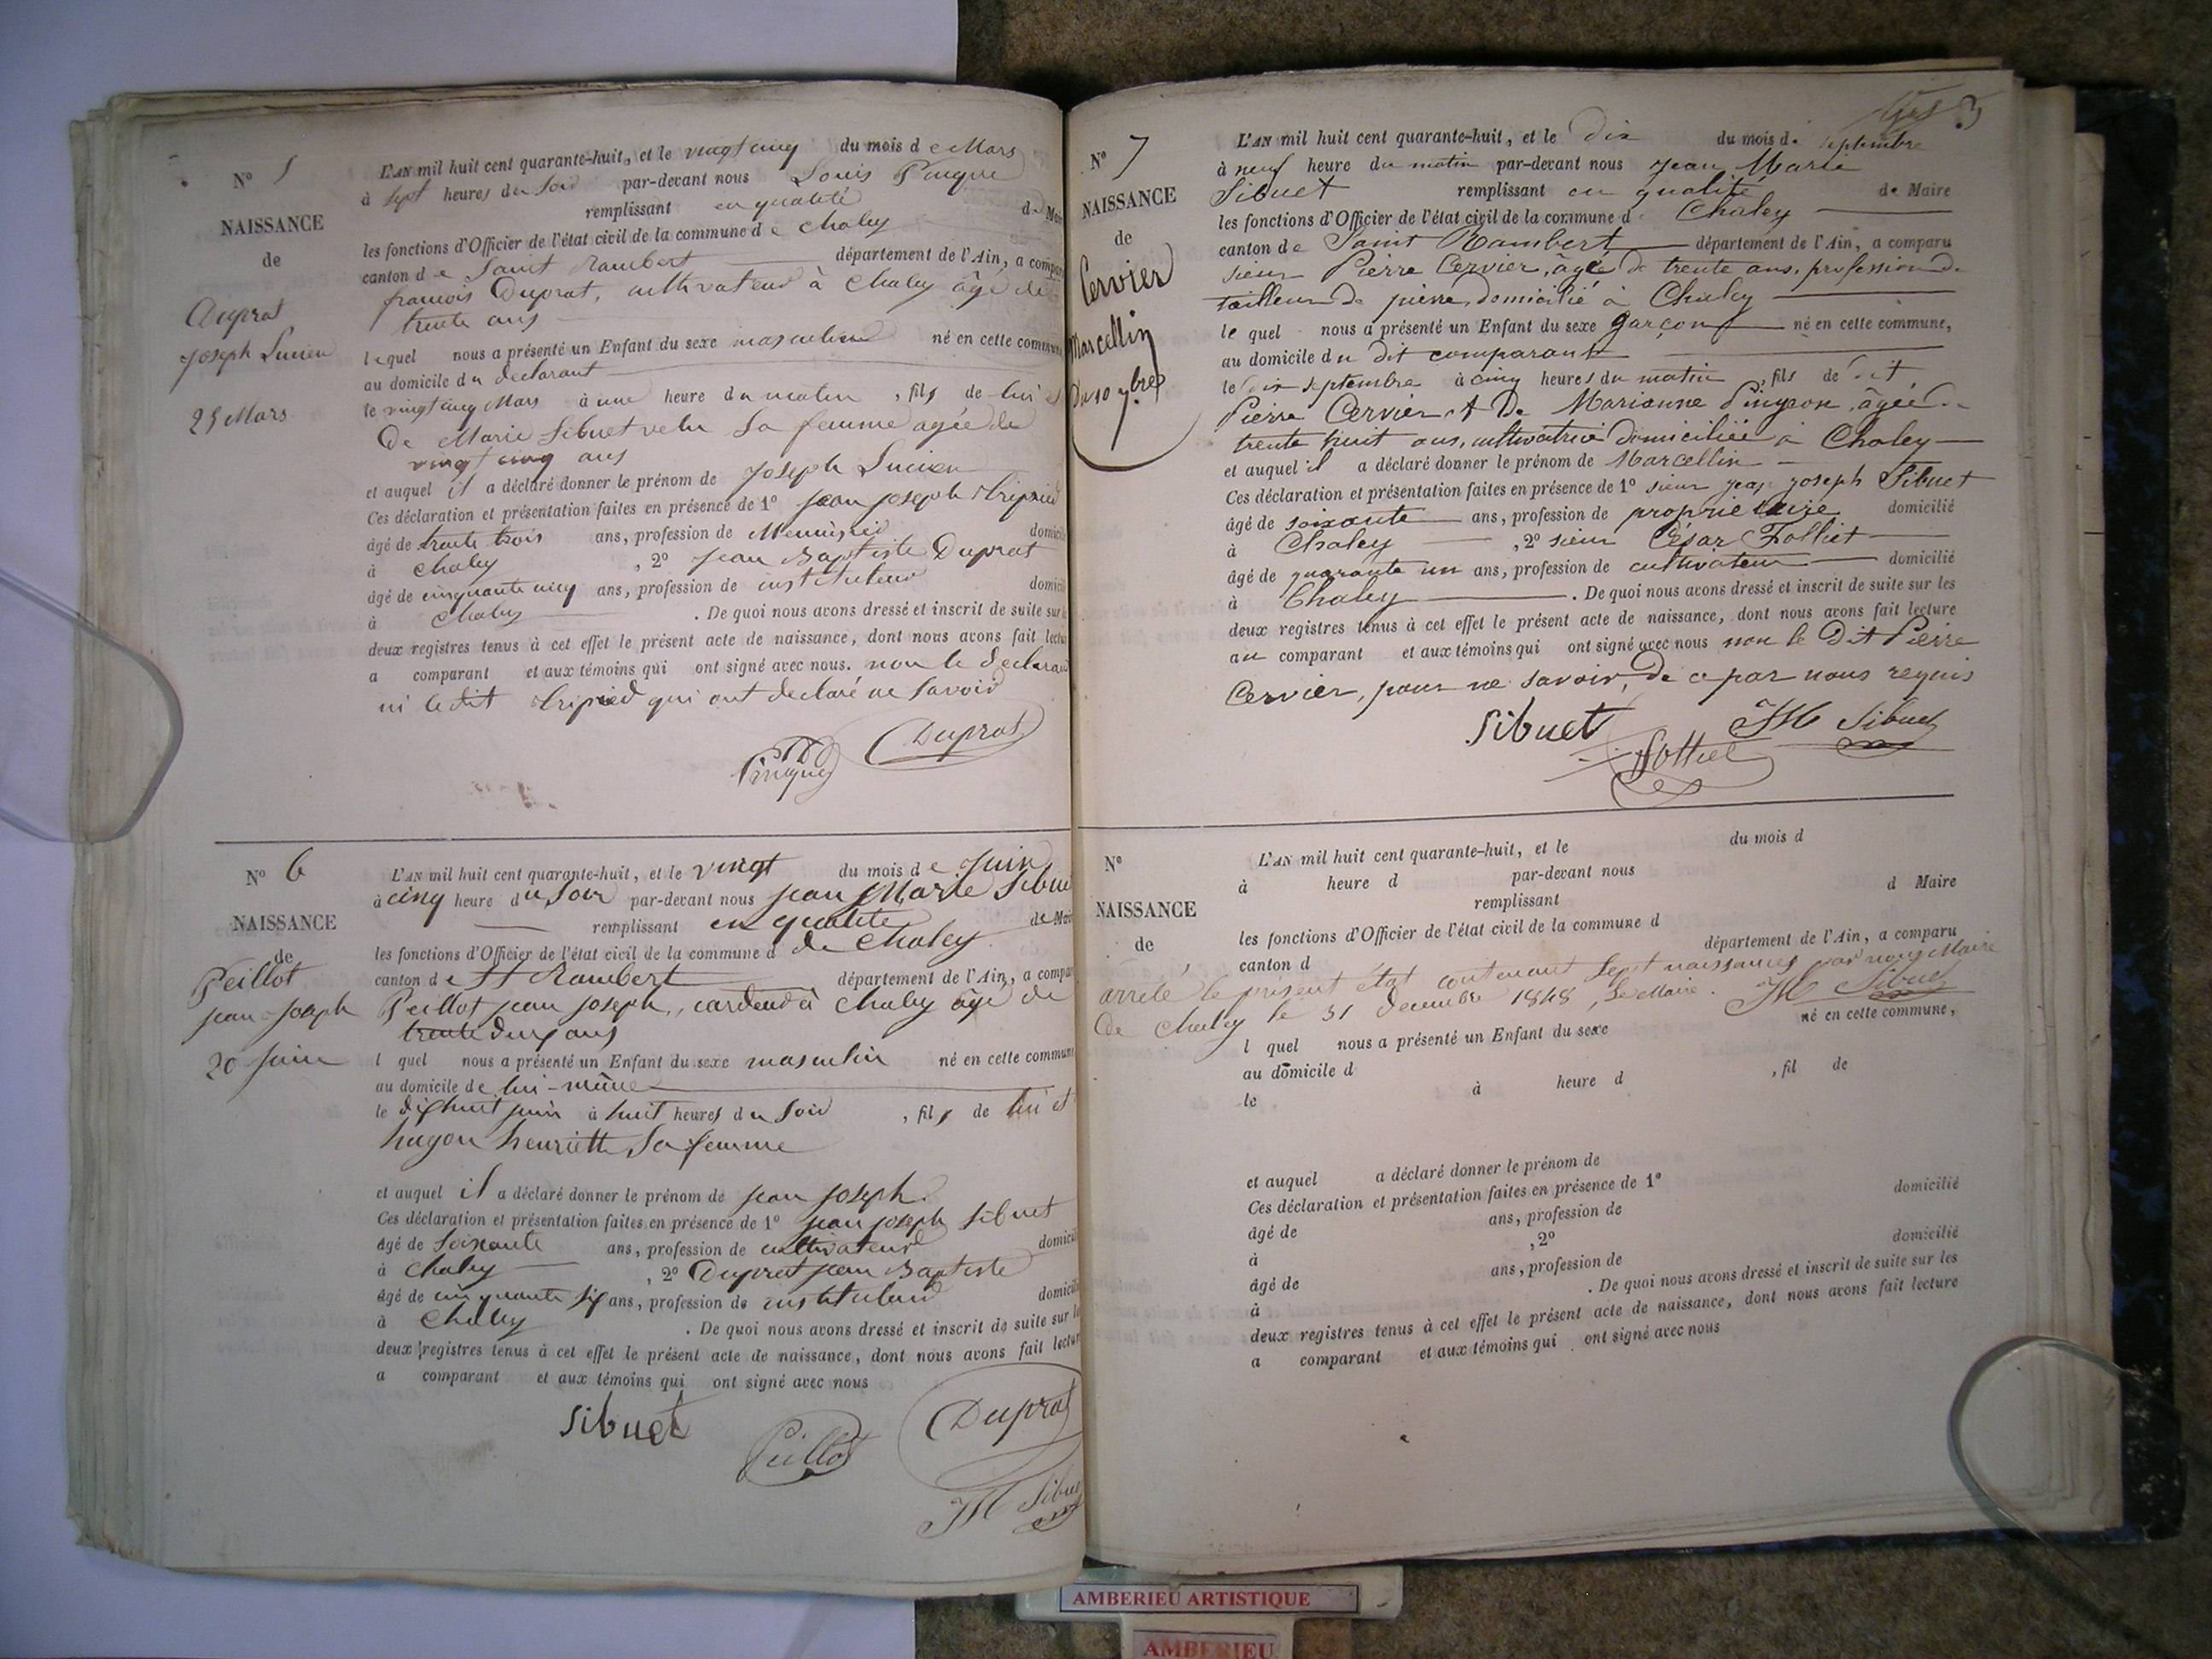 N° 5
NAISSANCE
de
Duprat
Joseph Lucien
25 Mars
L'AN mil huit cent quarante-huit, et le vingt cinq du mois de Mars
à sept heures du soir par-devant nous Louis
remplissant en qualité de Mai
les fonctions d'Officier de l'état civil de la commune de Chaley
canton de Saint Rambert département de l'Ain, a compar
françois Duprat, cultivateur à Chaley âgé de
trente ans
lequel nous a présenté un Enfant du sexe masculin né en cette commune
au domicile du declarant
le vingt cinq Mars à une heure du matin, fils de lui et
De Marie Sibuet sa femme agée de
vingt cinq ans
et auquel il a déclaré donner le prénom de Joseph Lucien
Ces déclaration et présentation faites en présence de 1° jean joseph Tripied
âgé de trente trois ans, profession de Menuisier domicil
à Chaley, 2° Jean Baptiste Duprat
âgé de cinquante cinq ans, profession de instituteur domicil
à Chaley. De quoi nous avons dressé et inscrit de suite sur l
deux registres tenus à cet effet le présent acte de naissance, dont nous avons fait lectu
a comparant et aux témoins qui ont signé avec nous. non le declarant
ni le dit Tripied qui ont declaré ne savoir
Duprat
N° 6
NAISSANCE
de
Peillot
jean-joseph
20 Juin
L'AN mil huit cent quarante-huit, et le vingt du mois de Juin
à cinq heure du Soir par-devant nous jean Marie Sibue
remplissant en qualité de Mai
les fonctions d'Officier de l'état civil de la commune d de Chaley
canton de St Rambert département de l'Ain, a compar
Peillot jean joseph, cardeur à Chaley âgé de
trente deux ans
l quel nous a présenté un Enfant du sexe masculin né en cette commun
au domicile de lui-même
le dix huit juin à huit heures du Soir, fils de lui et
hugon henriette Sa femme
et auquel il a déclaré donner le prénom de jean joseph.
Ces déclaration et présentation faites en présence de 1° jean joseph Sibuet
âgé de Soixante ans, profession de cultivateur domicil
à Chaley, 2° Duprat jean Baptiste
âgé de cinquante six ans, profession de instituteur domicil
à Chaley. De quoi nous avons dressé et inscrit de suite sur l
deux registres tenus à cet effet le présent acte de naissance, dont nous avons fait lectur
a comparant et aux témoins qui ont signé avec nous
Sibuet
Peillot
Duprat
JM Sibue
3
N° 7
NAISSANCE
de
Cervier
Marcellin
Du 10 7bre
L'AN mil huit cent quarante-huit, et le dix du mois de septembre
à neuf heure du matin par-devant nous Jean Marie
Sibuet remplissant en qualité de Maire
les fonctions d'Officier de l'état civil de la commune d Chaley
canton de Saint Rambert département de l'Ain, a comparu
sieur Pierre Cervier, âgé de trente ans, profession de
tailleur de pierre, domicilié à Chaley
le quel nous a présenté un Enfant du sexe garçon né en cette commune,
au domicile du dit comparant
le dix septembre à cinq heures du matin, fils de dit
Pierre Cervier et De Marianne Pingeon, âgée de
trente huit ans, cultivatrice domiciliée à Chaley
et auquel il a déclaré donner le prénom de Marcellin
Ces déclaration et présentation faites en présence de 1° sieur jean joseph Sibuet
âgé de soixante ans, profession de propriétaire domicilié
à Chaley, 2° sieur César Folliet
âgé de quarante un ans, profession de cultivateur domicilié
à Chaley. De quoi nous avons dressé et inscrit de suite sur les
deux registres tenus à cet effet le présent acte de naissance, dont nous avons fait lecture
au comparant et aux témoins qui ont signé avec nous non le Dit Pierre
Cervier, pour ne savoir, de ce par nous requis
Sibuet
JM Sibuet
N°
NAISSANCE
de
L'AN mil huit cent quarante-huit, et le du mois d
à heure d par-devant nous
remplissant d Maire
les fonctions d'Officier de l'état civil de la commune d
canton d département de l'Ain, a comparu
arrêté le présent état contenant Sept naissances par nous Maire
De Chaley le 31 Decembre 1848, Le Maire. JM Sibuet
l quel nous a présenté un Enfant du sexe né en cette commune,
au domicile d
le à heure d, fil de
et auquel a déclaré donner le prénom de
Ces déclaration et présentation faites en présence de 1°
âgé de ans, profession de domicilié
à, 2°
âgé de ans, profession de domicilié
à. De quoi nous avons dressé et inscrit de suite sur les
deux registres tenus à cet effet le présent acte de naissance, dont nous avons fait lecture
a comparant et aux témoins qui ont signé avec nous
AMBERIEU ARTISTIQUE
AMBERIEU